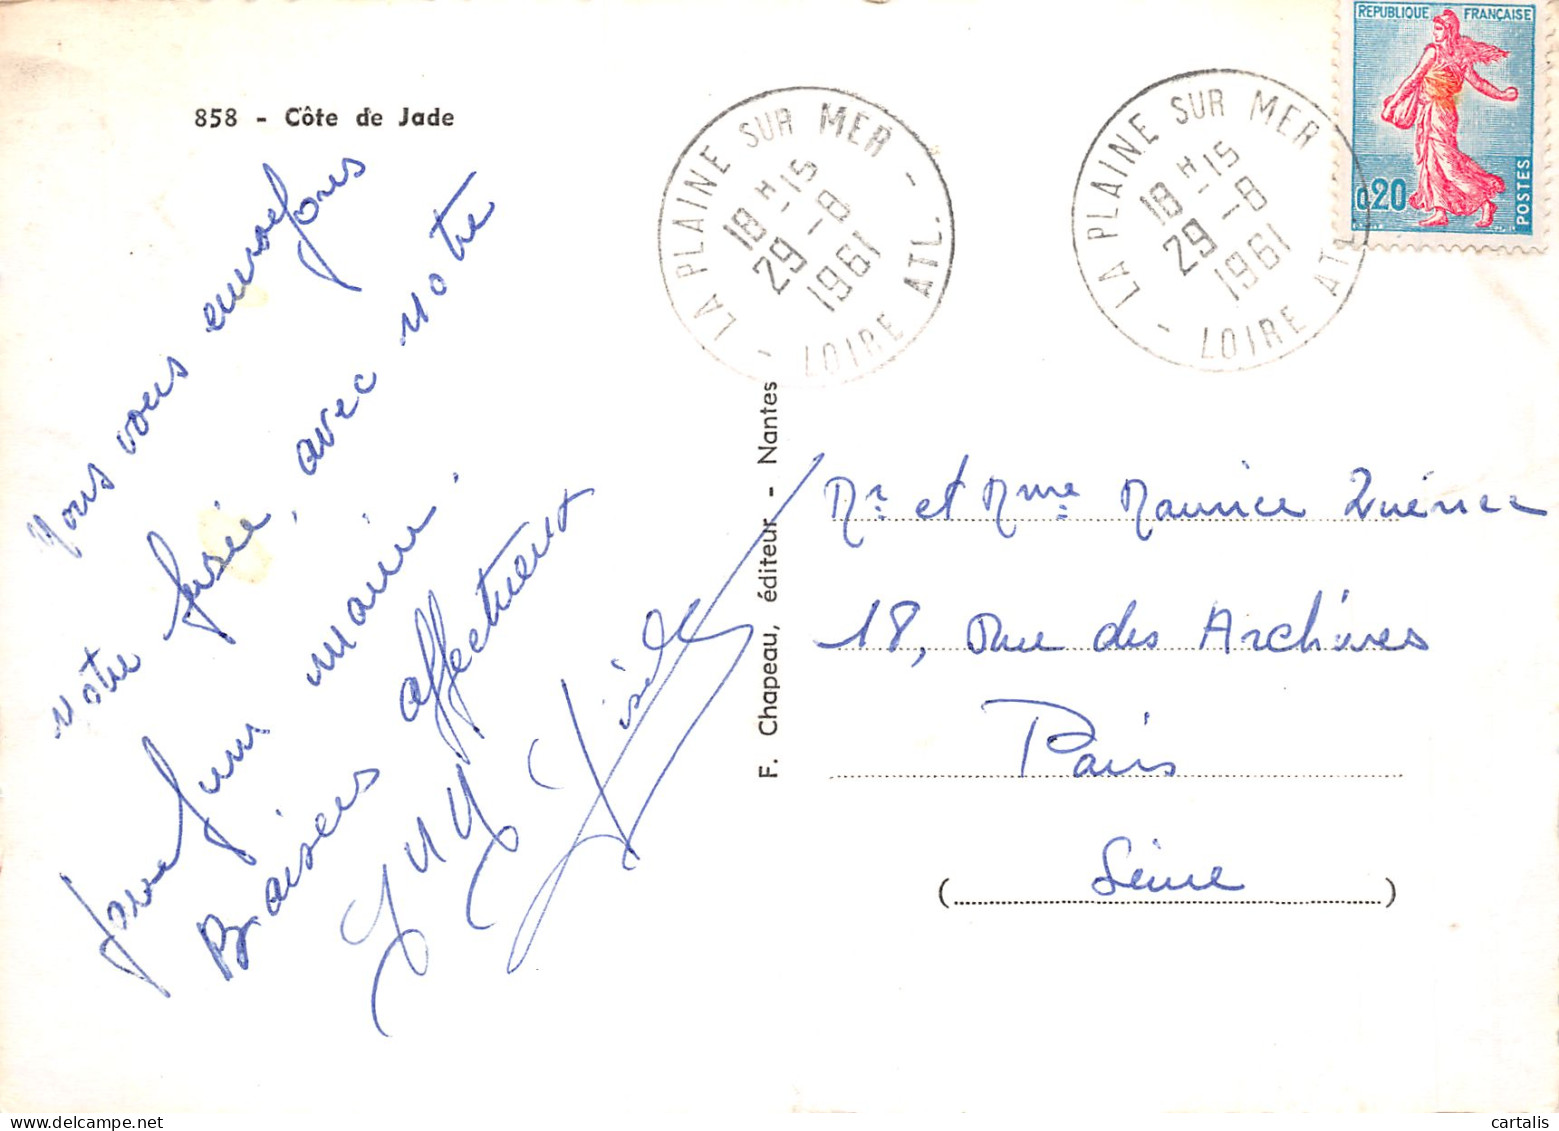 858 - Côte de Jade
Nous vous envoyons
notre fusée, avec notre
parfum marin.
Baisers affectueux
Guy Gisèle
F. Chapeau, éditeur - Nantes
LA PLAINE SUR MER - LOIRE ATL.
18 H 15
29 - 8
1961
LA PLAINE SUR MER - LOIRE ATL.
18 H 15
29 - 8
1961
REPUBLIQUE FRANÇAISE
0,20
POSTES
Mr et Mme Maurice
18, Rue des Archives
Paris
(Seine)
cartalis